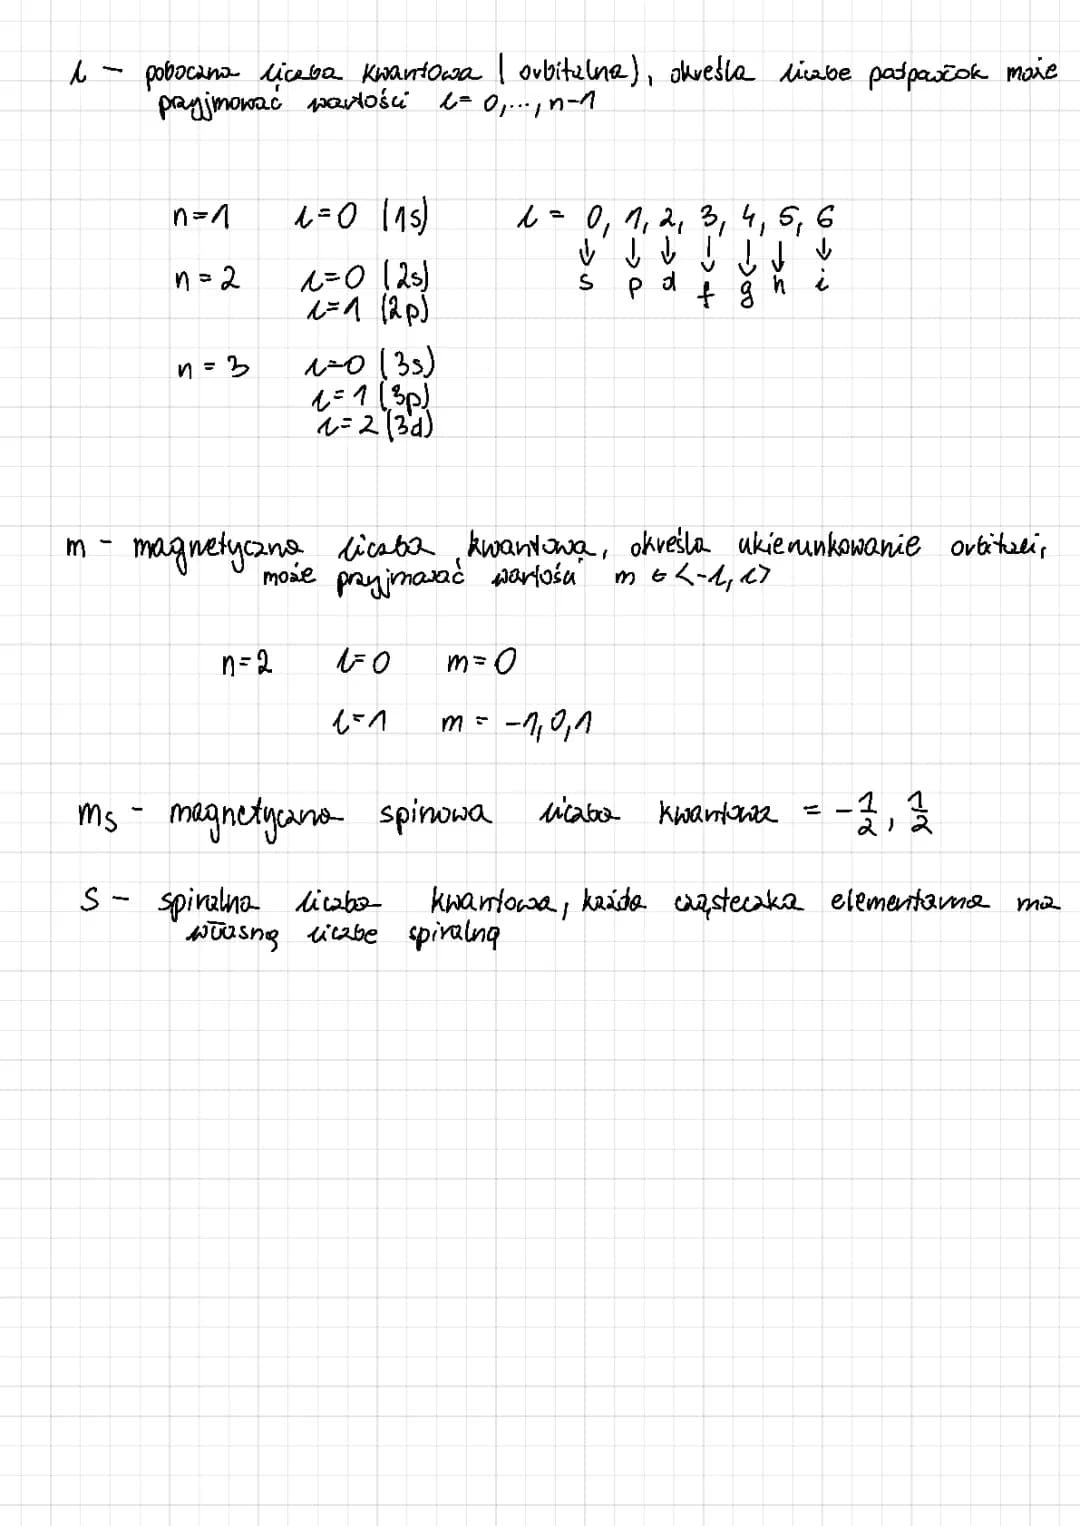 l - poboczna liczba kwantowa (orbitalna), określa liczbe podpowłok może
przyjmować wartości l = 0,..., n-1
n=1 l=0 (1s) l = 0, 1, 2, 3, 4, 5, 6
↓ ↓ ↓ ↓ ↓ ↓ ↓
n=2 l=0 (2s) s p d f g h i
l=1 (2p)
n=3 l=0 (3s)
l=1 (3p)
l=2 (3d)
m - magnetyczna liczba kwantowa, określa ukierunkowanie orbitali,
może przyjmować wartości m ∈ <-l, l>
n=2 l=0 m=0
l=1 m = -1, 0, 1
ms - magnetyczna spinowa liczba kwantowa = -1/2, 1/2
S - spiralna liczba kwantowa, każda cząsteczka elementarna ma
własną liczbe spiralną